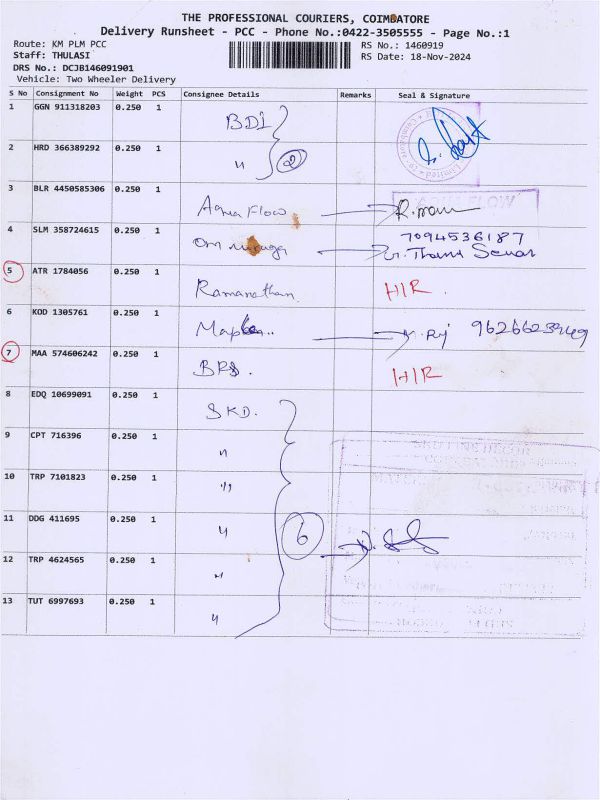 THE PROFESSIONAL COURIERS, COIMBATORE
Delivery Runsheet - PCC - Phone No.:0422-3505555 - Page No.:1
Route: KM PLM PCC
RS No.: 1460919
Staff: THULASI
RS Date: 18-Nov-2024
DRS No.: DCJB146091901
Vehicle: Two Wheeler Delivery
S No Consignment No Weight PCS Consignee Details Remarks Seal & Signature
1 GGN 911318203 0.250 1 BDI
2 HRD 366389292 0.250 1 " 2
3 BLR 4450585306 0.250 1 Aqua Flow AQUA FLOW
4 SLM 358724615 0.250 1 Om muruga 7094536187
5 ATR 1784056 0.250 1 Ramanathan H/R.
6 KOD 1305761 0.250 1
7 MAA 574606242 0.250 1 BRS. H/R
8 EDQ 10699091 0.250 1 SKD.
9 CPT 716396 0.250 1 "
10 TRP 7101823 0.250 1 "
11 DDG 411695 0.250 1 " 6
12 TRP 4624565 0.250 1 "
13 TUT 6997693 0.250 1 "